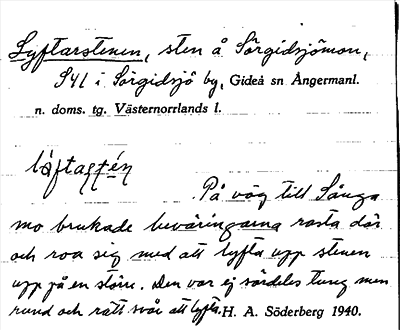 Lyftarstenen, sten å Sörgidsjömon,
S41 i Sörgidsjö by, Gideå sn Ångermanl.
n. doms. tg. Västernorrlands l.
På väg till Sånga
mo brukade beväringarna rasta där
och roa sig med att lyfta upp stenen
upp på en större. Den var ej särdeles tung men
rund och rätt svår att lyfta. H. A. Söderberg 1940.